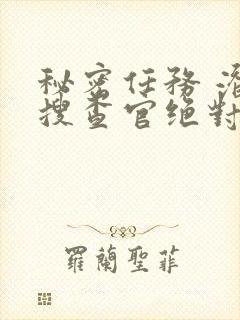 秘密任務 潛
搜查官绝對
羅蘭聖菲